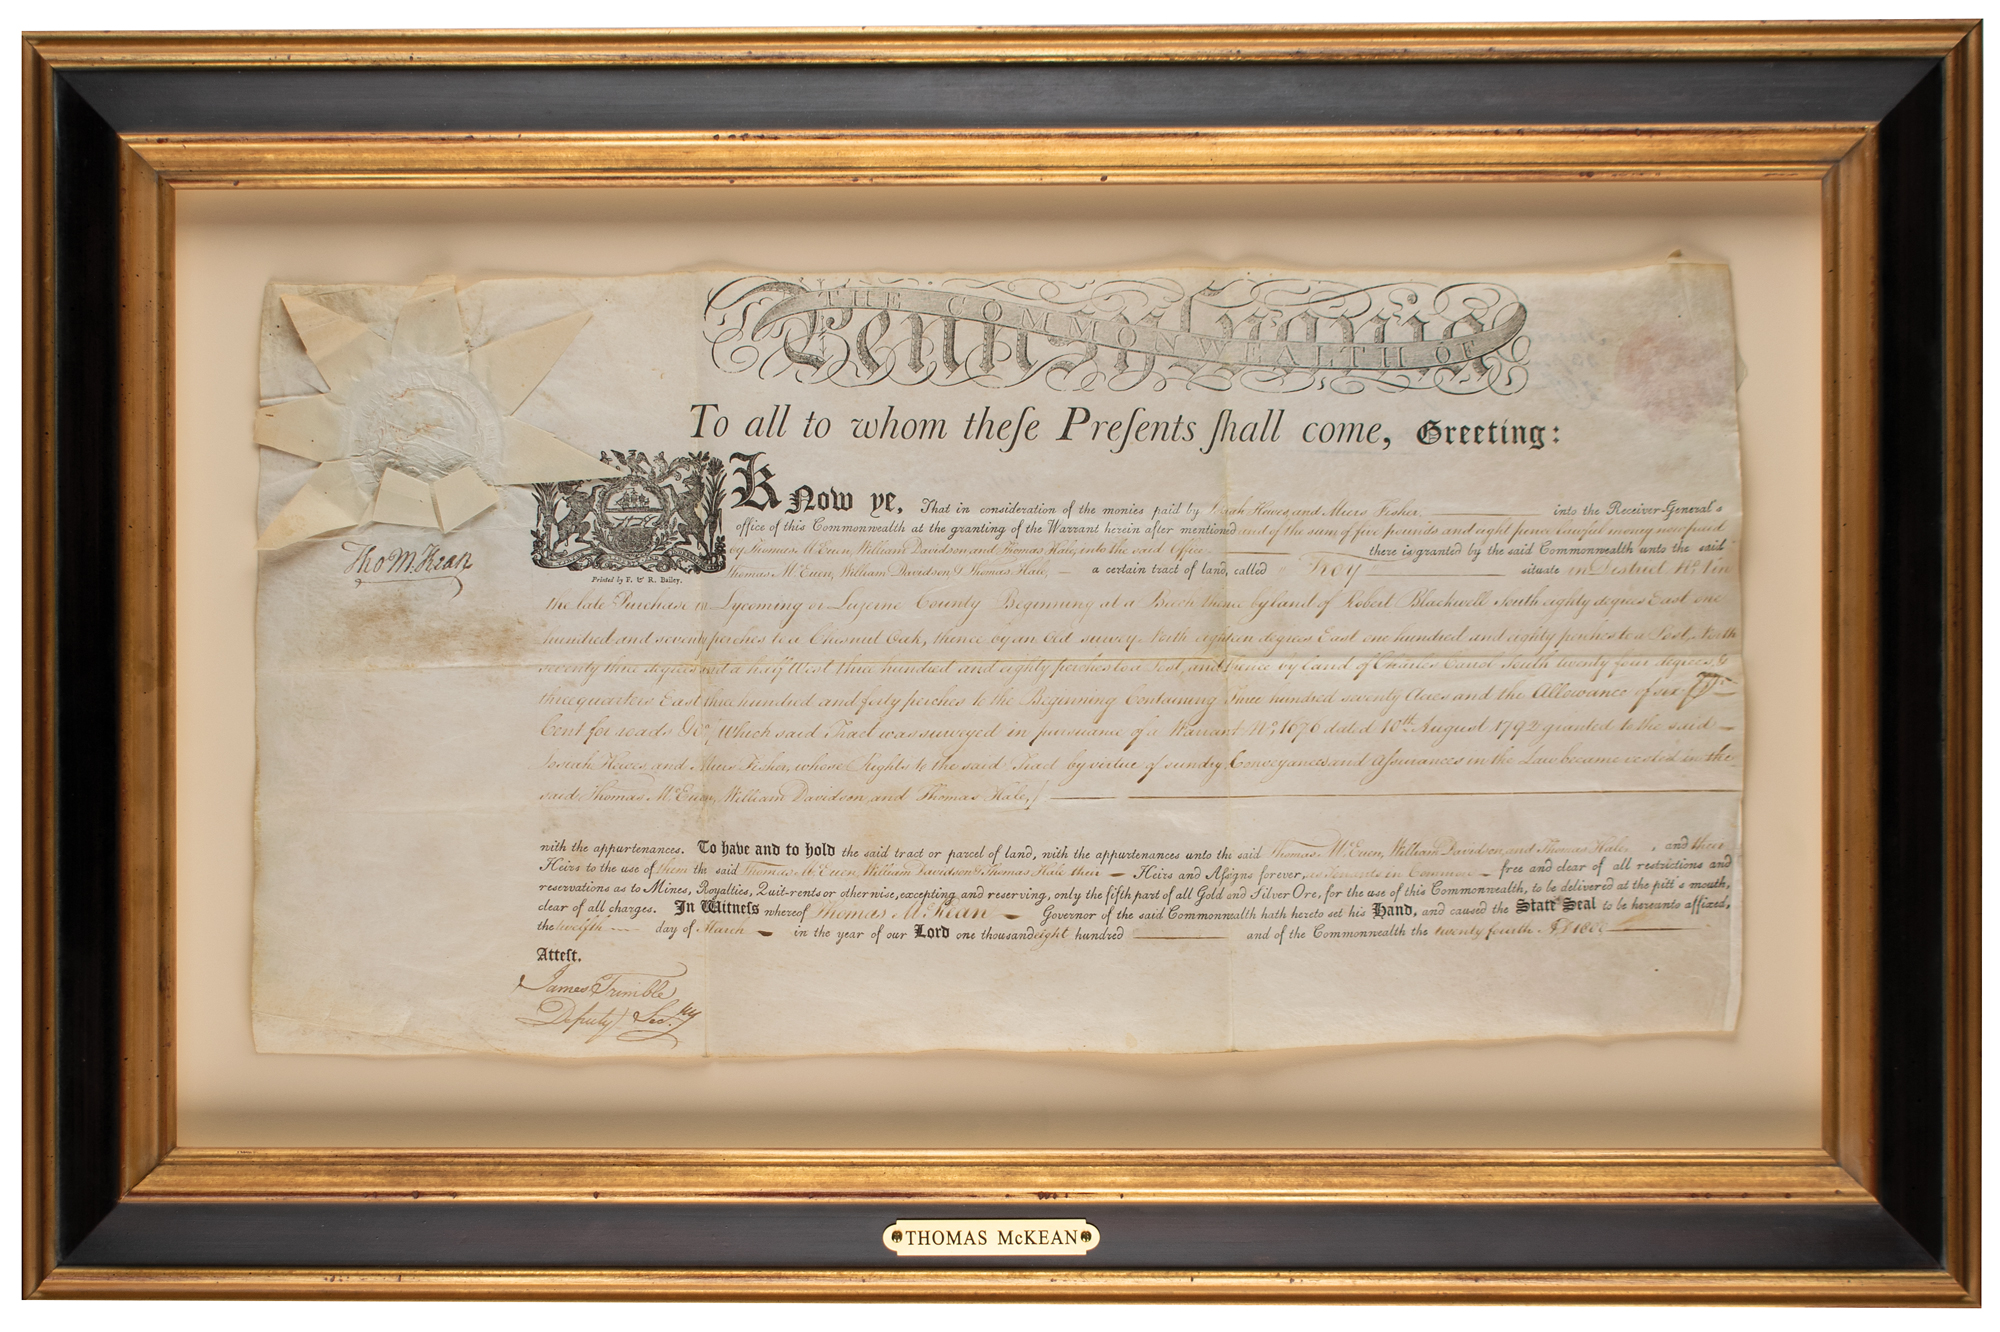 THE COMMONWEALTH OF
Pennsylvania
To all to whom theſe Preſents ſhall come, Greeting:
Know ye, That in consideration of the monies paid by Josiah Hewes and Miers Fisher, into the Receiver-General's
office of this Commonwealth at the granting of the Warrant herein after mentioned and of the sum of five pounds and eight pence Lawful money now paid
by Thomas McEuen, William Davidson and Thomas Hale, into the said Office there is granted by the said Commonwealth unto the said
Thomas McEuen, William Davidson & Thomas Hale, a certain tract of land, called Troy situate in District No. 1 in
the late Purchase in Lycoming or Luzerne County Beginning at a Birch thence by land of Robert Blackwell South eighty degrees East one
hundred and seventy perches to a Chesnut Oak, thence by an Old survey North eighteen degrees East one hundred and eighty perches to a Post, North
seventy three degrees and a half West three hundred and eighty perches to a Post, and thence by land of Charles Carrol South twenty four degrees &
three quarters East three hundred and forty perches to the Beginning Containing three hundred seventy Acres and the Allowance of six Pr
Cent for roads &c. Which said Tract was surveyed in pursuance of a Warrant No. 1676 dated 10th August 1792 granted to the said
Josiah Hewes and Miers Fisher, whose Rights to the said Tract by virtue of sundry Conveyances and Aſsurances in the Law became vested in the
said Thomas McEuen, William Davidson, and Thomas Hale,
with the appurtenances. To have and to hold the said tract or parcel of land, with the appurtenances unto the said Thomas McEuen, William Davidson, and Thomas Hale, and their
Heirs to the use of them the said Thomas McEuen, William Davidson & Thomas Hale their Heirs and Aſsigns forever, as Tenants in Common free and clear of all restrictions and
reservations as to Mines, Royalties, Quit-rents or otherwise, excepting and reserving, only the fifth part of all Gold and Silver Ore, for the use of this Commonwealth, to be delivered at the pitt's mouth,
clear of all charges. In Witneſs whereof Thomas McKean Governor of the said Commonwealth hath hereto set his Hand, and caused the State Seal to be hereunto affixed,
the twelfth day of March in the year of our Lord one thousand eight hundred and of the Commonwealth the twenty fourth
Atteſt.
James Trimble
Deputy Secry
Tho M:Kean
Printed by F. & R. Bailey.
THOMAS McKEAN